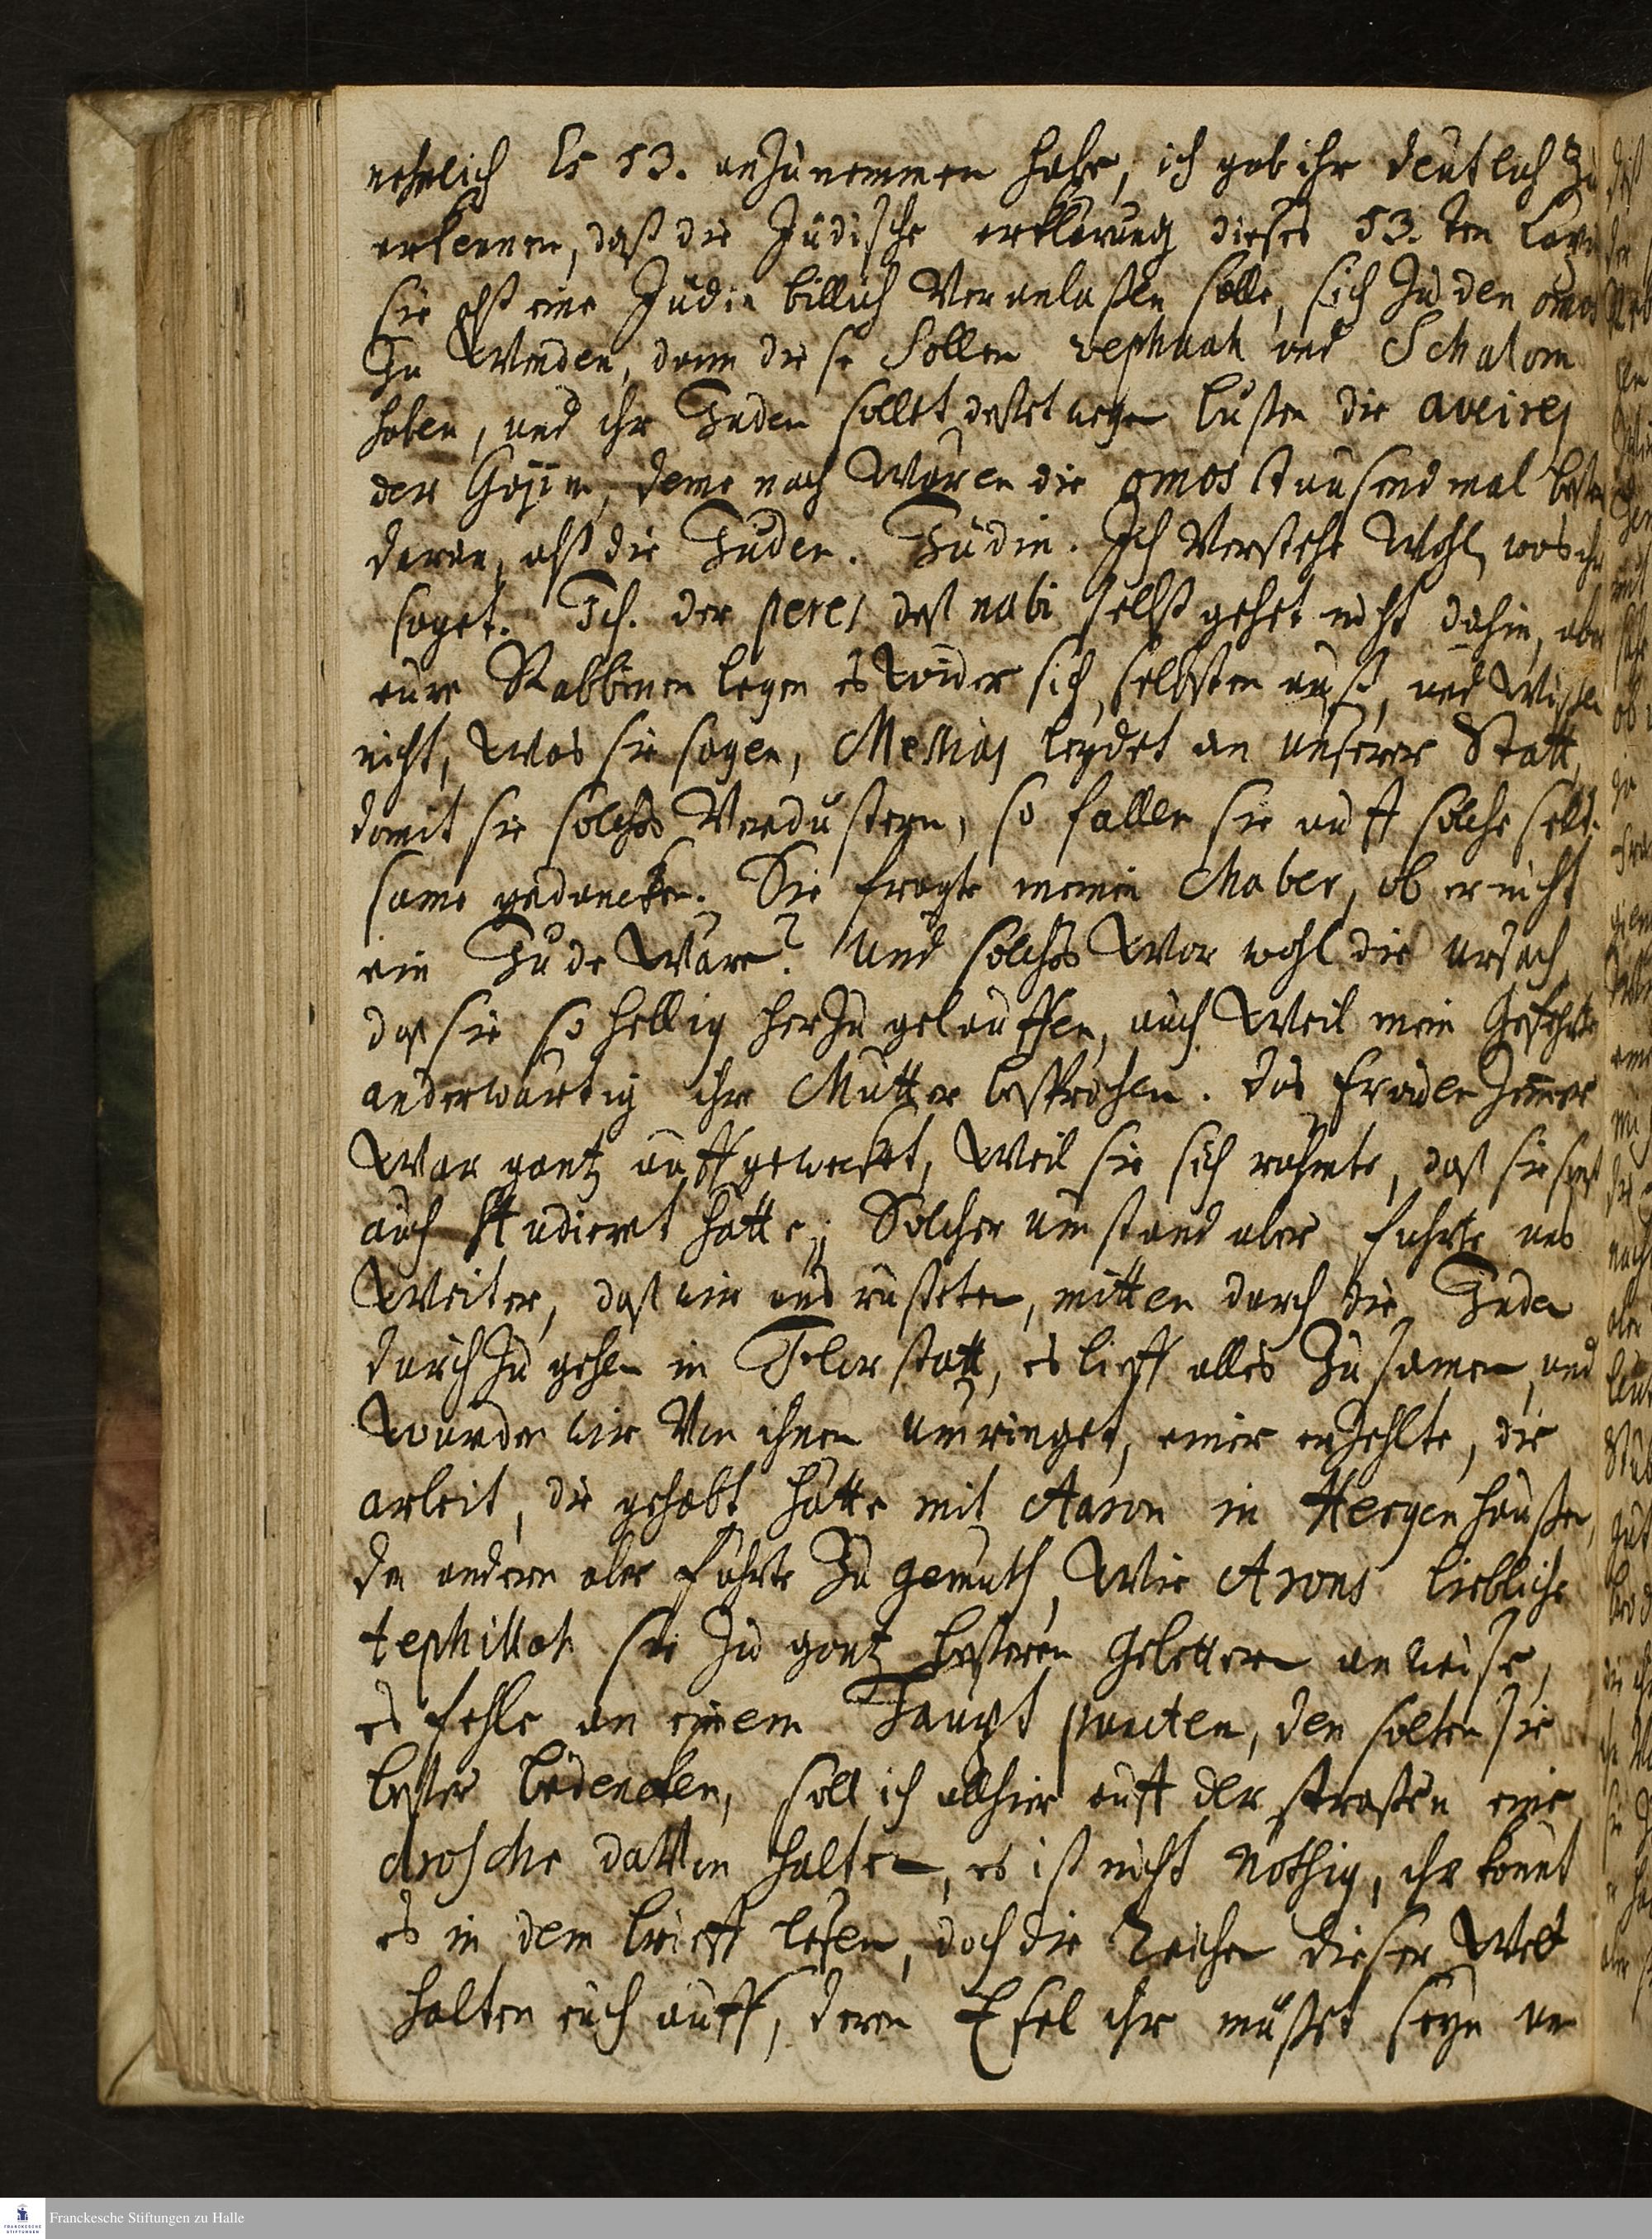 nehmlich Es 53. anzunemmen habe, ich gab ihr deutlich zu
erkennen, daß die Jüdische erklärung dieses 53.ten Cap.
sie alß eine Jüdin billich Veranlaßen solle, sich zu den omos
zu Wenden, dann diese Sollen rephuah und Schalom
haben, und ihr Juden sollet deßetwegen büßen die aveires
der Gojim, deme nach Wären die omos tausend mal beßer
daran, alß die Juden. Jüdin. Ich Verstehe Wohl, was ihr
saget. Ich. der peres deß nabi selbst gehet nicht dahin, aber
eure Rabbinen legen es wider sich selbsten auß, und Wißen
nicht, Was sie sagen, Messias leydet an unserer Statt,
damit sie solches Verdustern, so fallen sie auff solche selt-
same gedancken. Sie fragte meinen Chaber, ob er nicht
ein Jude Wäre? Und solches War wohl die ursach,
daß sie so hellig herzu gelauffen, auch Weil mein Gefehrte
anderwärtig ihre Mutter besprochen. das frauenzimmer
War gantz auffgeweckt, Weil sie sich rühmte, daß sie sonst
auch studieret hatte; Solcher umstand aber führte uns
Weiter, daß wir uns rüsteten, mitten durch die Juden
durchzugehen in Florstatt, es lieff alles zusamen, und
wurden wir Von ihnen umringet, einer erzehlte, die
arbeit, die gehabt hätte mit Aaron in Hergenhaußen,
den andern aber führte zu gemuth, Wie Arons liebliche
tephillah sie zu gantz beßeren Gebettern anweise,
es fehle an einem Haupt puncten, den solten sie
beßer bedencken, soll ich allhier auff der straßen eine
drosche davon halten, es ist nicht nöthig, ihr könnt
es in dem brieff lesen, doch die Reichen dieser Welt
halten euch auff, deren Esel ihr müßet seyn um
Franckesche Stiftungen zu Halle